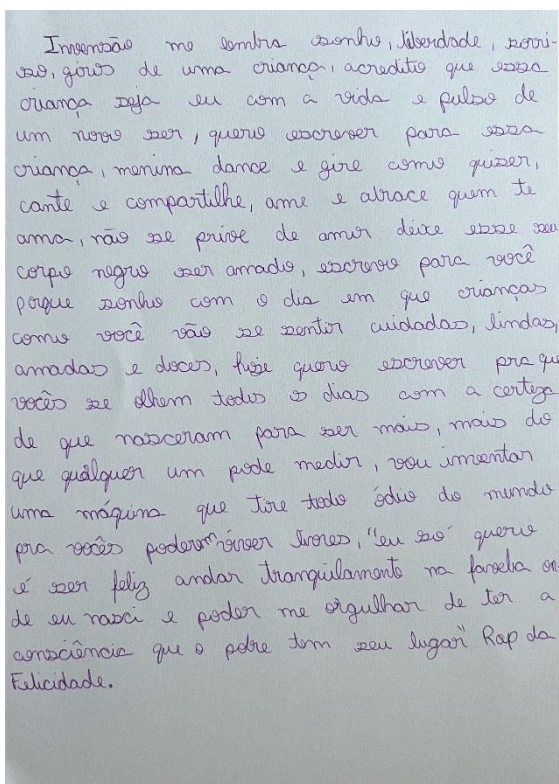 Invensão me lembra sonho, liberdade, sorri-
so, giros de uma criança, acredito que essa
criança seja eu com a vida e pulso de
um novo ser, quero escrever para essa
criança, menina dance e gire como quiser,
cante e compartilhe, ame e abrace quem te
ama, não se prive de amor deixe esse seu
corpo negro ser amado, escrevo para você
porque sonho com o dia em que crianças
como você vão se sentir cuidadas, lindas,
amadas e doces, hoje quero escrever pra que
vocês se olhem todos os dias com a certeza
de que nasceram para ser mais, mais do
que qualquer um pode medir, vou inventar
uma máquina que tire todo ódio do mundo
pra vocês poderem viver livres, "eu só quero
é ser feliz andar tranquilamente na favela on-
de eu nasci e poder me orgulhar de ter a
consciência que o pobre tem seu lugar" Rap da
Felicidade.